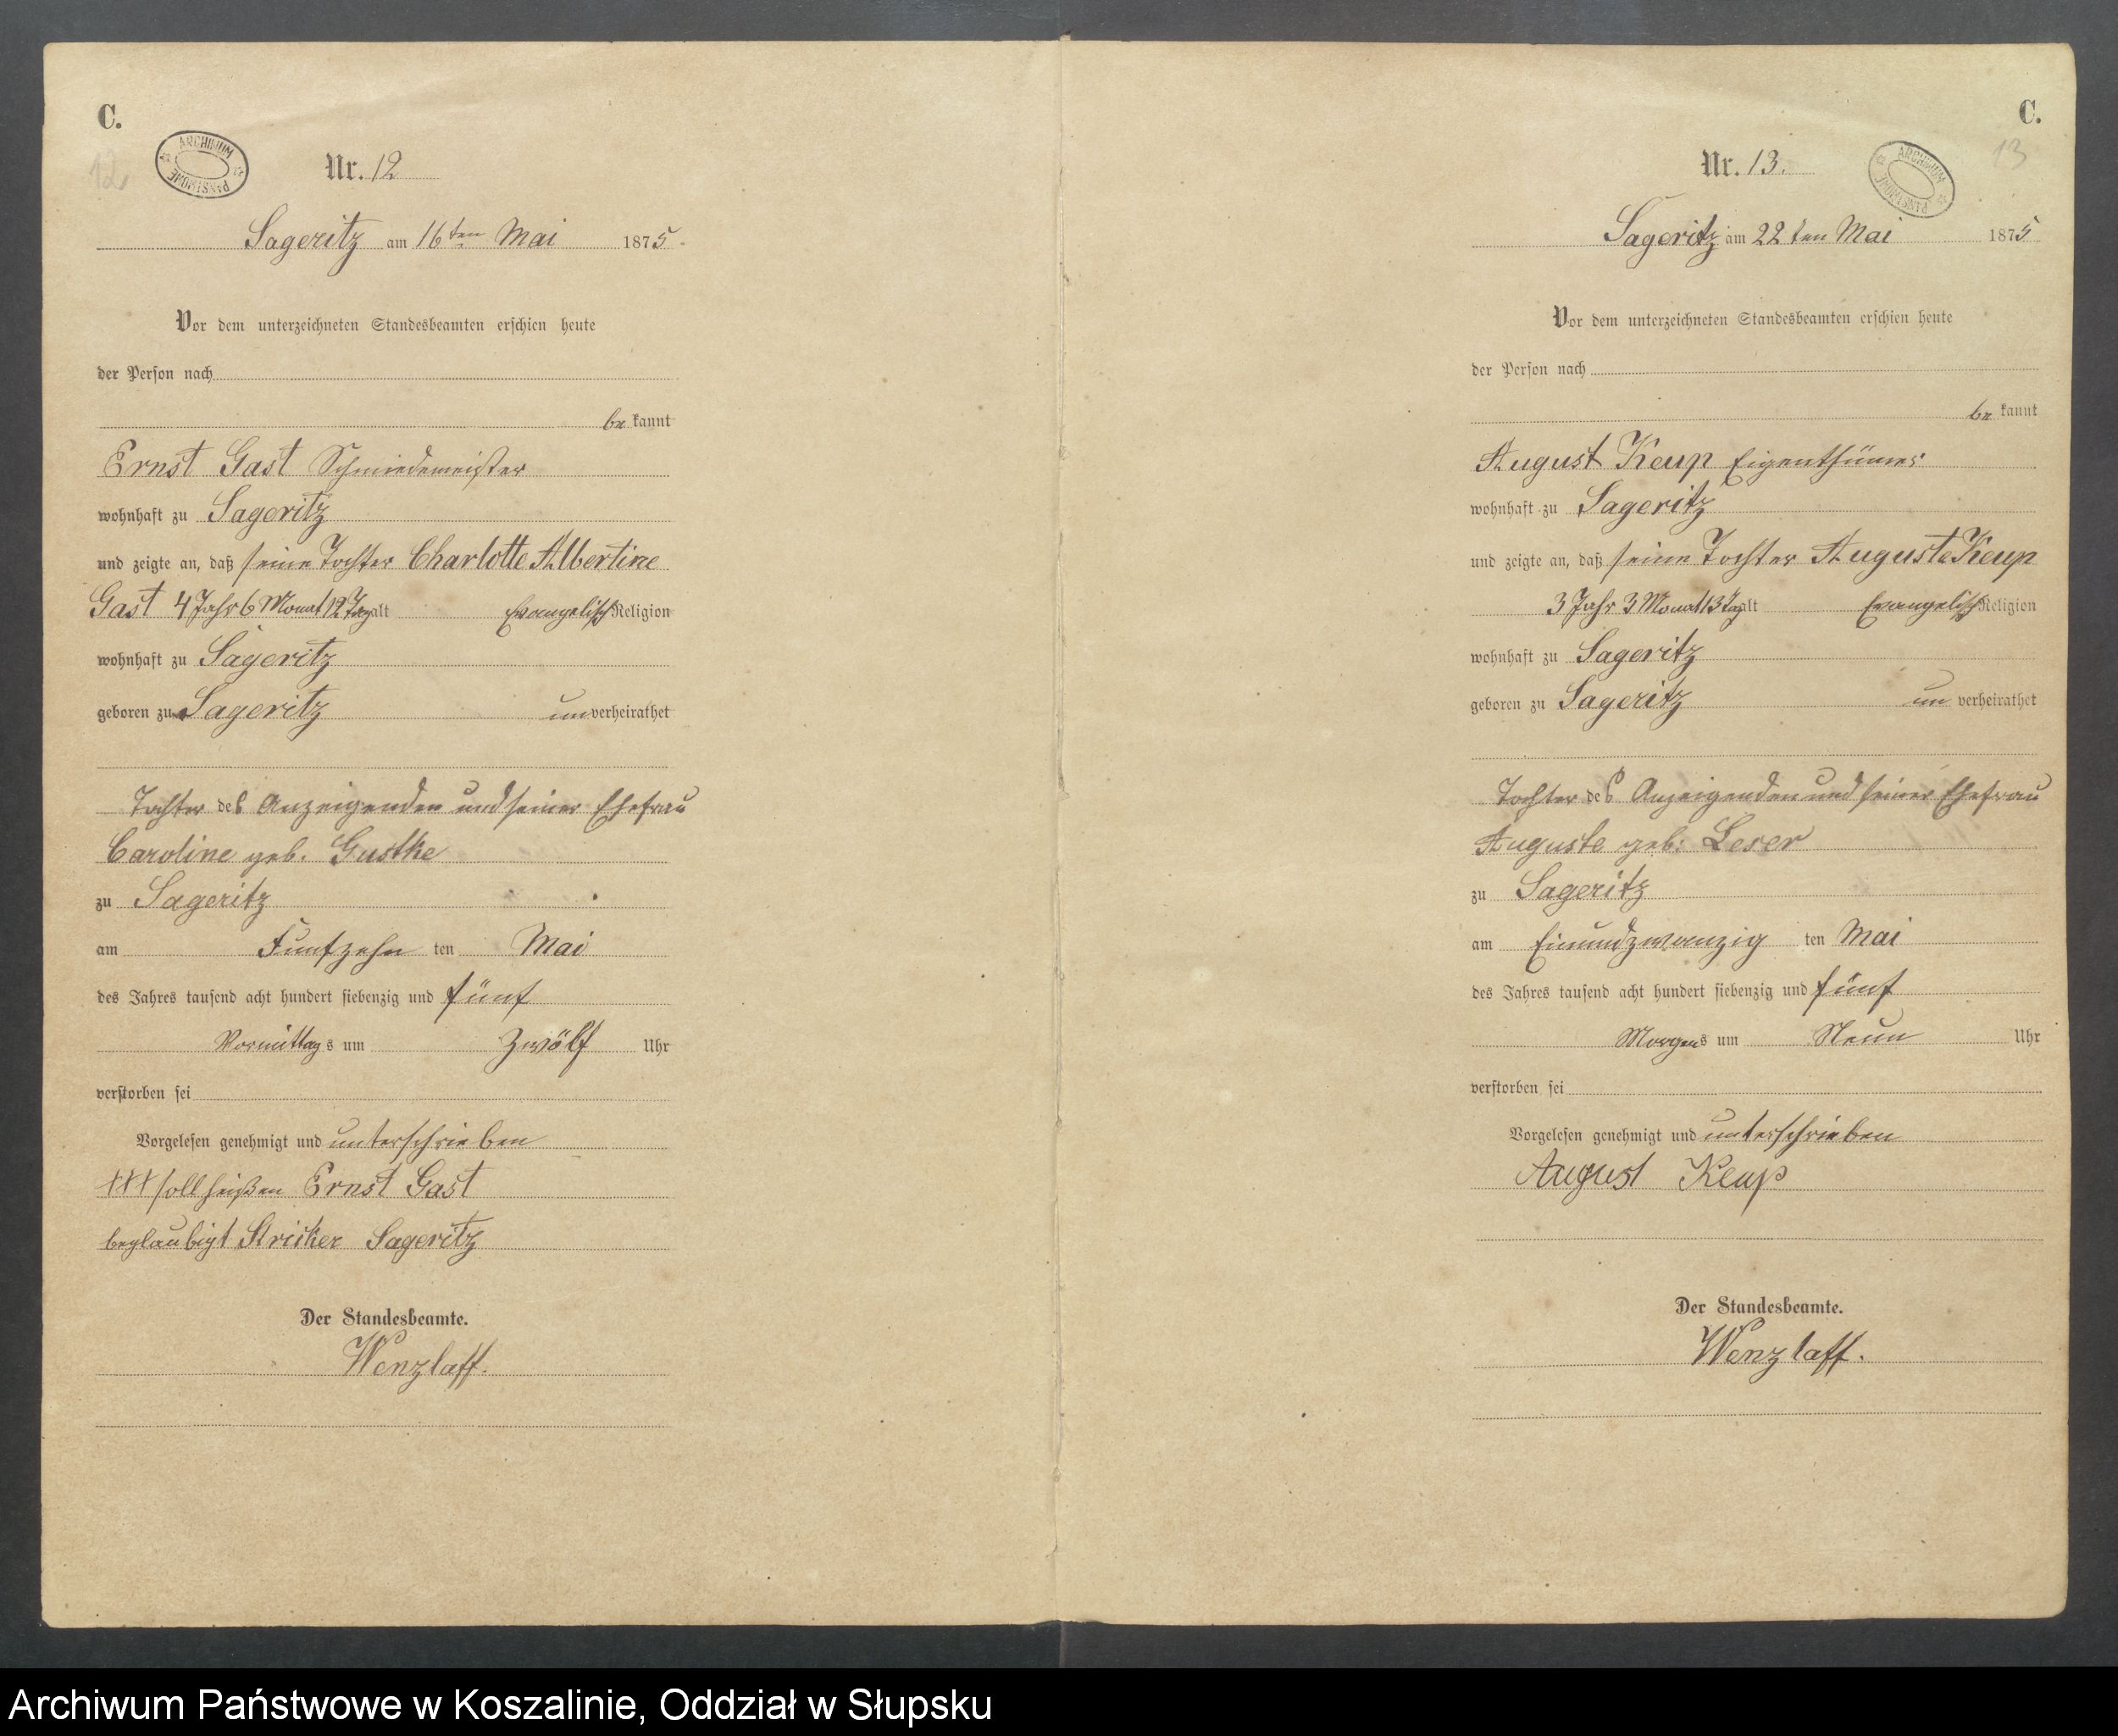 C.
12
ARCHIWUM PAŃSTWOWE
Nr. 12
Sageritz am 16ten Mai 1875.
Vor dem unterzeichneten Standesbeamten erschien heute
der Person nach
be kannt
Ernst Gast Schmiedemeister
wohnhaft zu Sageritz
und zeigte an, daß seine Tochter Charlotte Albertine
Gast 4 Jahr 6 Monat 12 Tag alt Evangelisch Religion
wohnhaft zu Sageritz
geboren zu Sageritz un verheirathet
Tochter des Anzeigenden und seiner Ehefrau
Caroline geb. Gustke
zu Sageritz
am Funfzehn ten Mai
des Jahres tausend acht hundert siebenzig und fünf
Vormittag s um Zwölf Uhr
verstorben sei
Vorgelesen genehmigt und unterschrieben
+++ soll heißen Ernst Gast
beglaubigt Striker Sageritz
Der Standesbeamte.
Wenzlaff.
C.
13
ARCHIWUM PAŃSTWOWE
Nr. 13.
Sageritz am 22ten Mai 1875
Vor dem unterzeichneten Standesbeamten erschien heute
der Person nach
be kannt
August Keup Eigenthümer
wohnhaft zu Sageritz
und zeigte an, daß seine Tochter Auguste Keup
3 Jahr 3 Monat 13 Tag alt Evangelisch Religion
wohnhaft zu Sageritz
geboren zu Sageritz un verheirathet
Tochter des Anzeigenden und seiner Ehefrau
Auguste geb: Leser
zu Sageritz
am Einundzwanzig ten Mai
des Jahres tausend acht hundert siebenzig und fünf
Morgens um Neun Uhr
verstorben sei
Vorgelesen genehmigt und unterschrieben
August Keup
Der Standesbeamte.
Wenzlaff.
Archiwum Państwowe w Koszalinie, Oddział w Słupsku